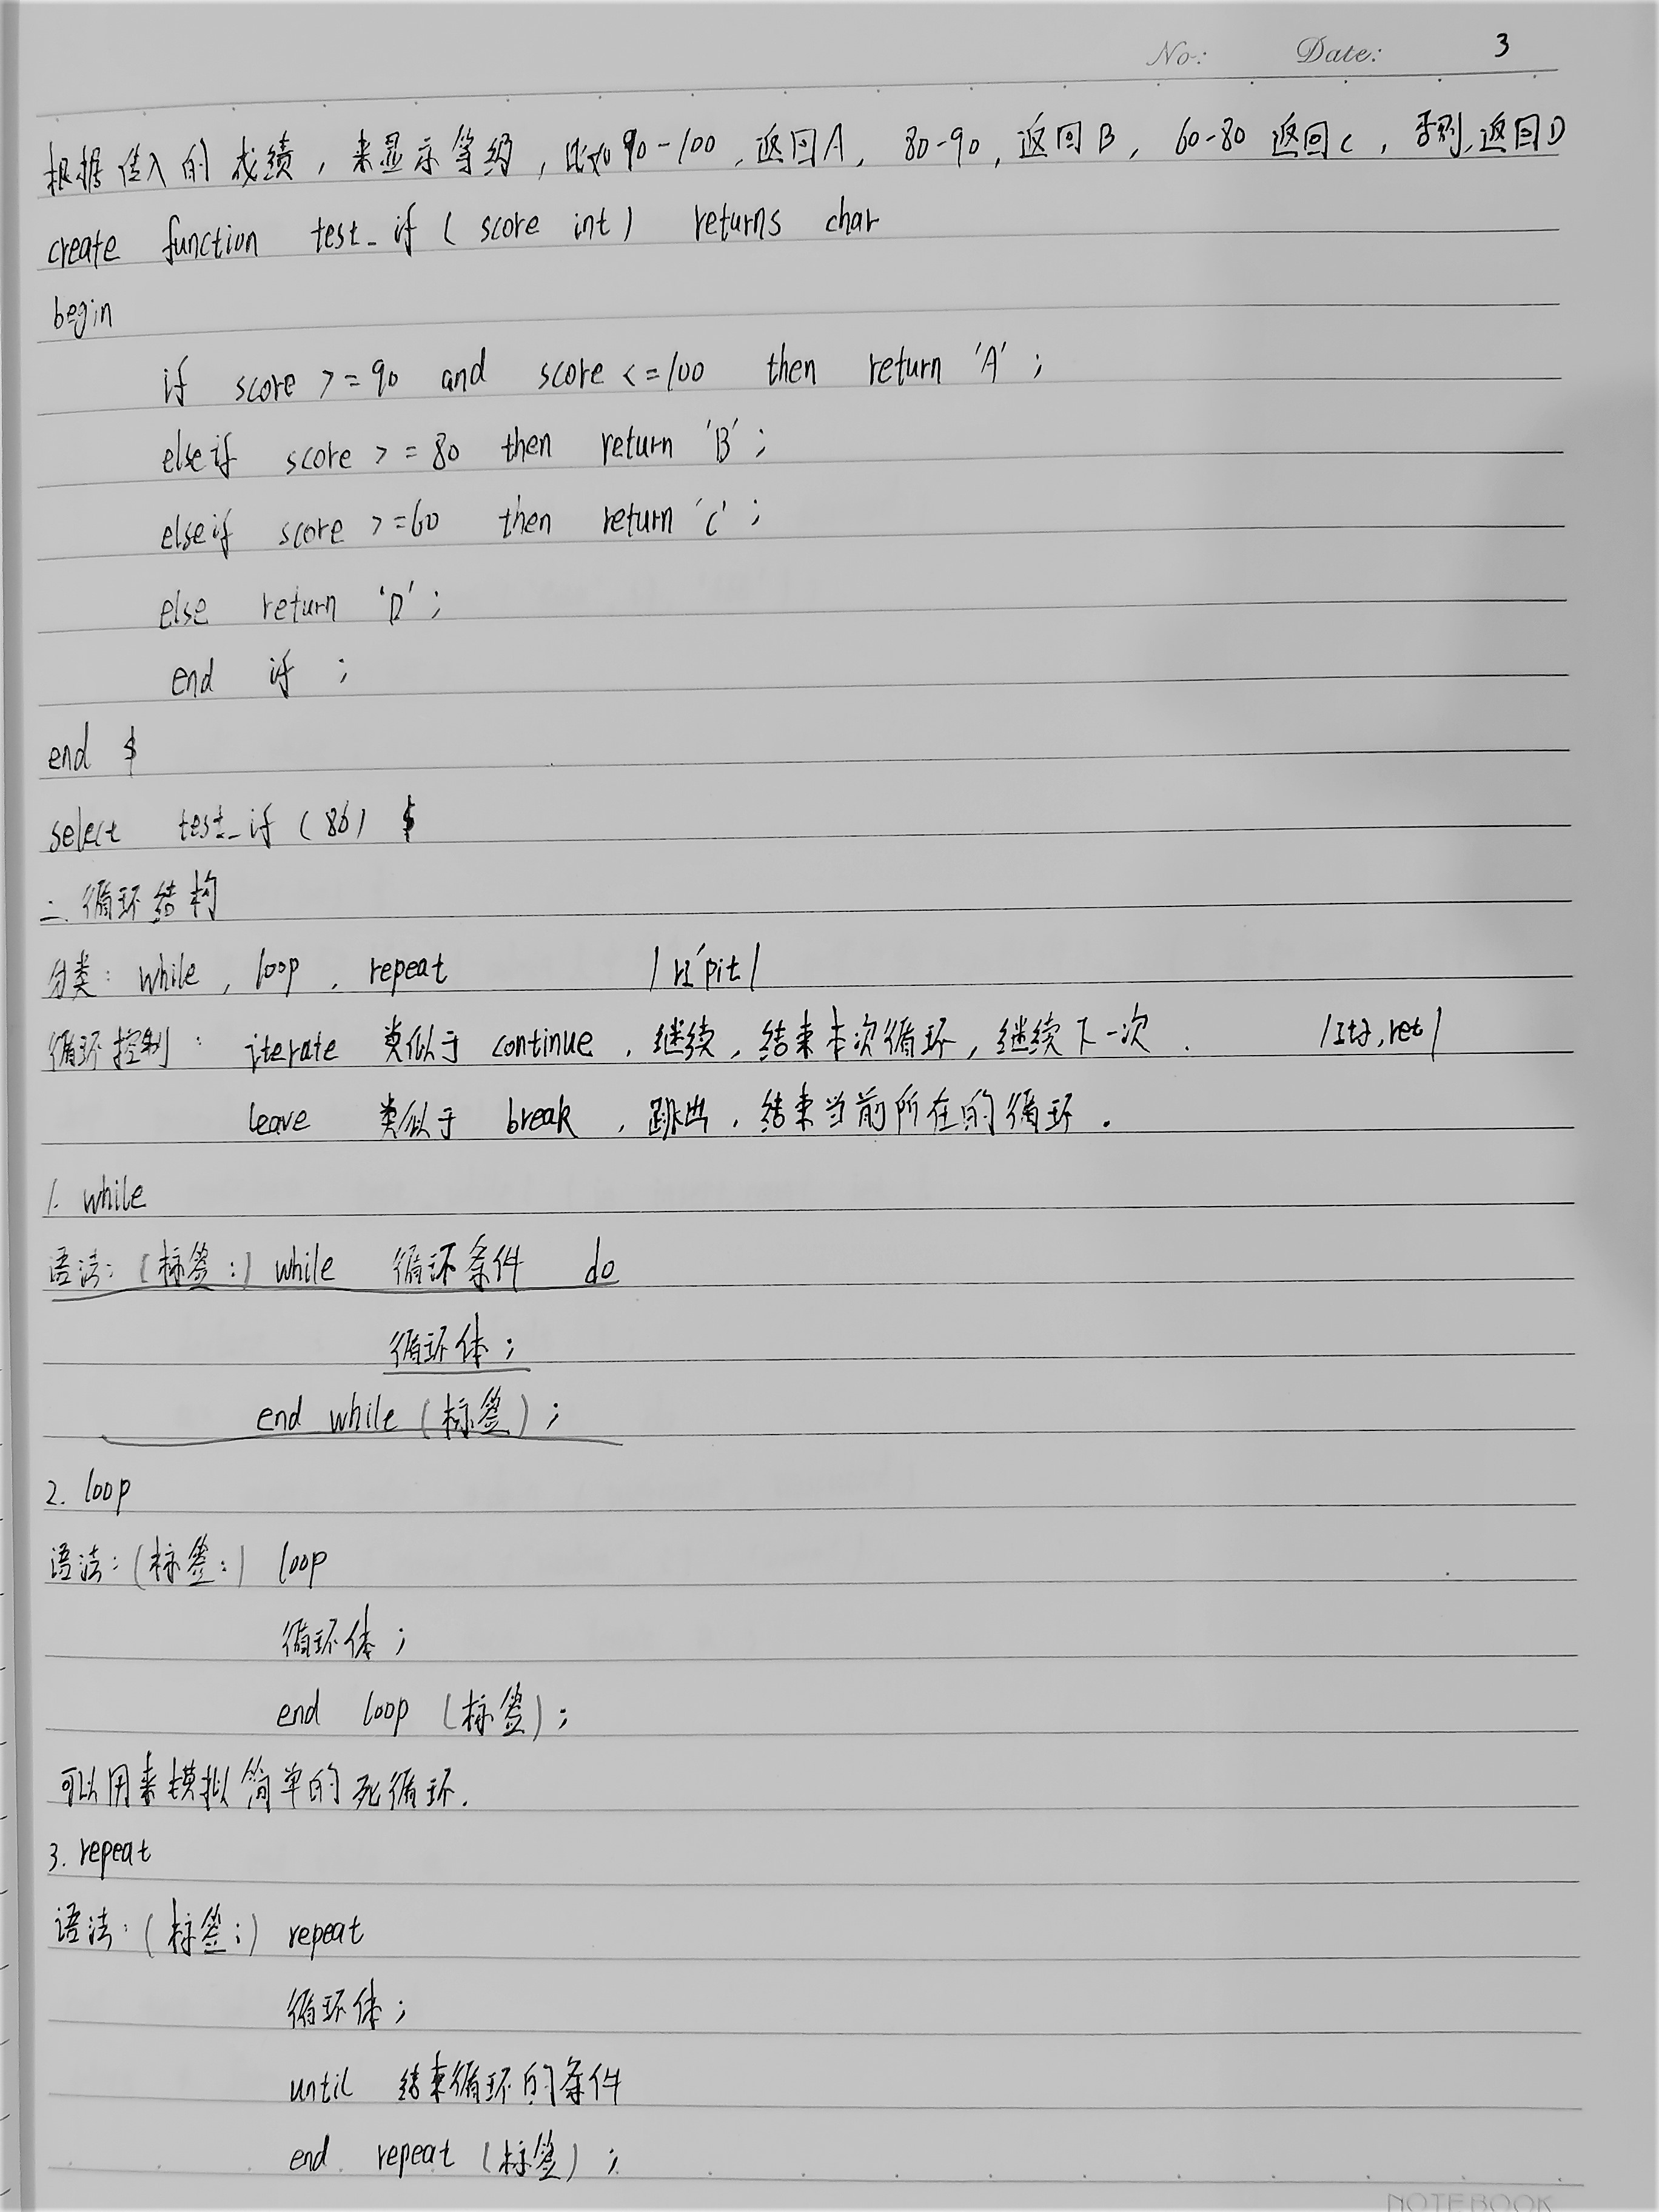 No: Date: 3
根据传入的成绩，来显示等级，比如90-100，返回A，80-90，返回B，60-80 返回C，否则，返回D
create function test_if ( score int ) returns char
begin
if score >=90 and score <=100 then return 'A' ;
elseif score >=80 then return 'B' ;
elseif score >=60 then return 'C' ;
else return 'D' ;
end if ;
end $
select test_if (86) $
二.循环结构
分类：while , loop , repeat /rɪˈpit/
循环控制：iterate 类似于 continue，继续，结束本次循环，继续下一次．
leave 类似于 break，跳出，结束当前所在的循环．
1. while
语法：(标签:) while 循环条件 do
循环体；
end while (标签) ;
2. loop
语法：(标签:) loop
循环体；
end loop (标签) ;
可以用来模拟简单的死循环.
3. repeat
语法：(标签:) repeat
循环体；
until 结束循环的条件
end repeat (标签) ;
NOTEBOOK